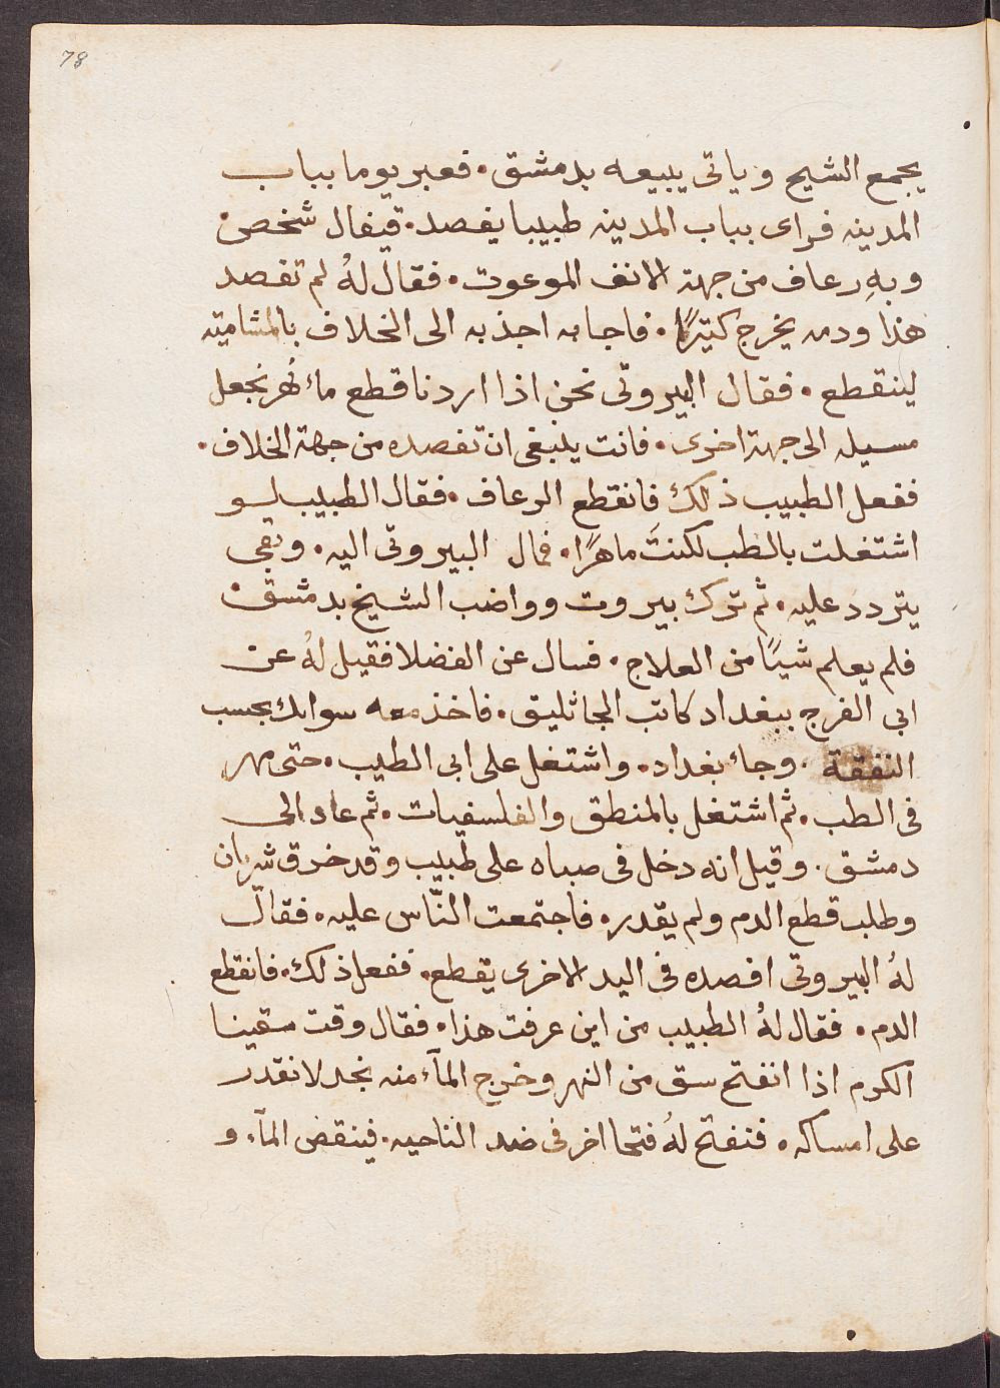 78
يجمع الشيح وياتى يبيعه بدمشق. فعبر يوما بباب
المدينه فراى بباب المدينه طبيبا يفصد. قيفال شخص
وبهِ رعاف من جهة الانف الموعوت. فقال لهُ لم تفصد
هذا ودمه يخرج كثيرًا. فاجابه اجذبه الى الخلاف بالمشامته
لينقطع. فقال البيروتى نحن اذا اردنا قطع ماء نُهر نجعل
مسيله الى جهة اخرى. فانت ينبغى ان تفصده من جهة الخلاف.
ففعل الطبيب ذلك فانقطع الرعاف. فقال الطبيب لو
اشتغلت بالطب لكنتَ ماهرًا. فمال البيروتى اليه. وبقى
يتردد عليه. ثم ترك بيروت وواضب الشيخ بدمشق.
فلم يعلم شيًا من العلاج. فسال عن الفضلا فقيل لهُ عن
ابى الفرج ببغداد كاتب الجاثليق. فاخذ معه سوارك بحسب
النفقة. وجاء بغداد. واشتغل على ابى الطيب. حتى مهر
فى الطب. ثم اشتغل بالمنطق والفلسفيات. ثم عاد الى
دمشق. وقيل انه دخل فى صباه على طبيب وقد خرق شريان
وطلب قطع الدم ولم يقدر. فاجتمعت النّاس عليه. فقال
لهُ البيروتى افصده فى اليد الاخرى يقطع. ففعل ذلك. فانقطع
الدم. فقال لهُ الطبيب من اين عرفت هذا. فقال وقت سقينا
الكرم اذا انفتح سق من النهر وخرج المآء منه بخد لا نقدر
على امساكه. فنفتح لهُ فتحا اخر فى ضد الناحيه. فينقض المآء و